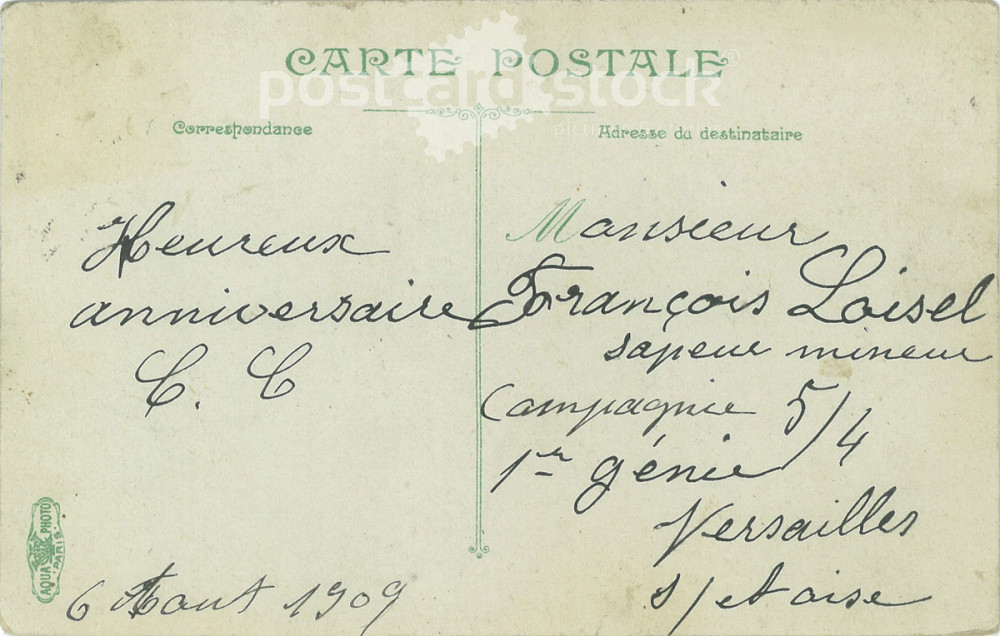 CARTE POSTALE
postcard stock
Correspondance
Adresse du destinataire
Heureux
anniversaire
C. C
6 Aout 1909
Monsieur
François Loisel
sapeur mineur
Compagnie 5/4
1er génie
Versailles
s/et oise
AQUA PHOTO
PARIS